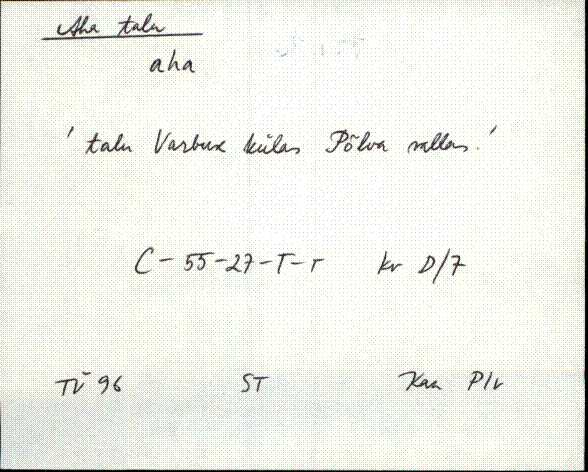 Aha talu
aha
' talu Varbuse külas Põlva vallas.'
C-55-27-T-r kv D/7
TÜ 96 ST Kan Plv